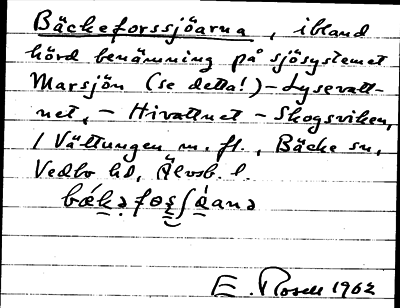 Bäckeforssjöarna, ibland
hörd benämning på sjösystemet
Marsjön (se detta!) - Lysevatt-
net, - Hivattnet - Skogsviken,
/ Vättungen m. fl., Bäcke sn,
Vedbo hd, Älvsb. l.
E. Rosell 1962